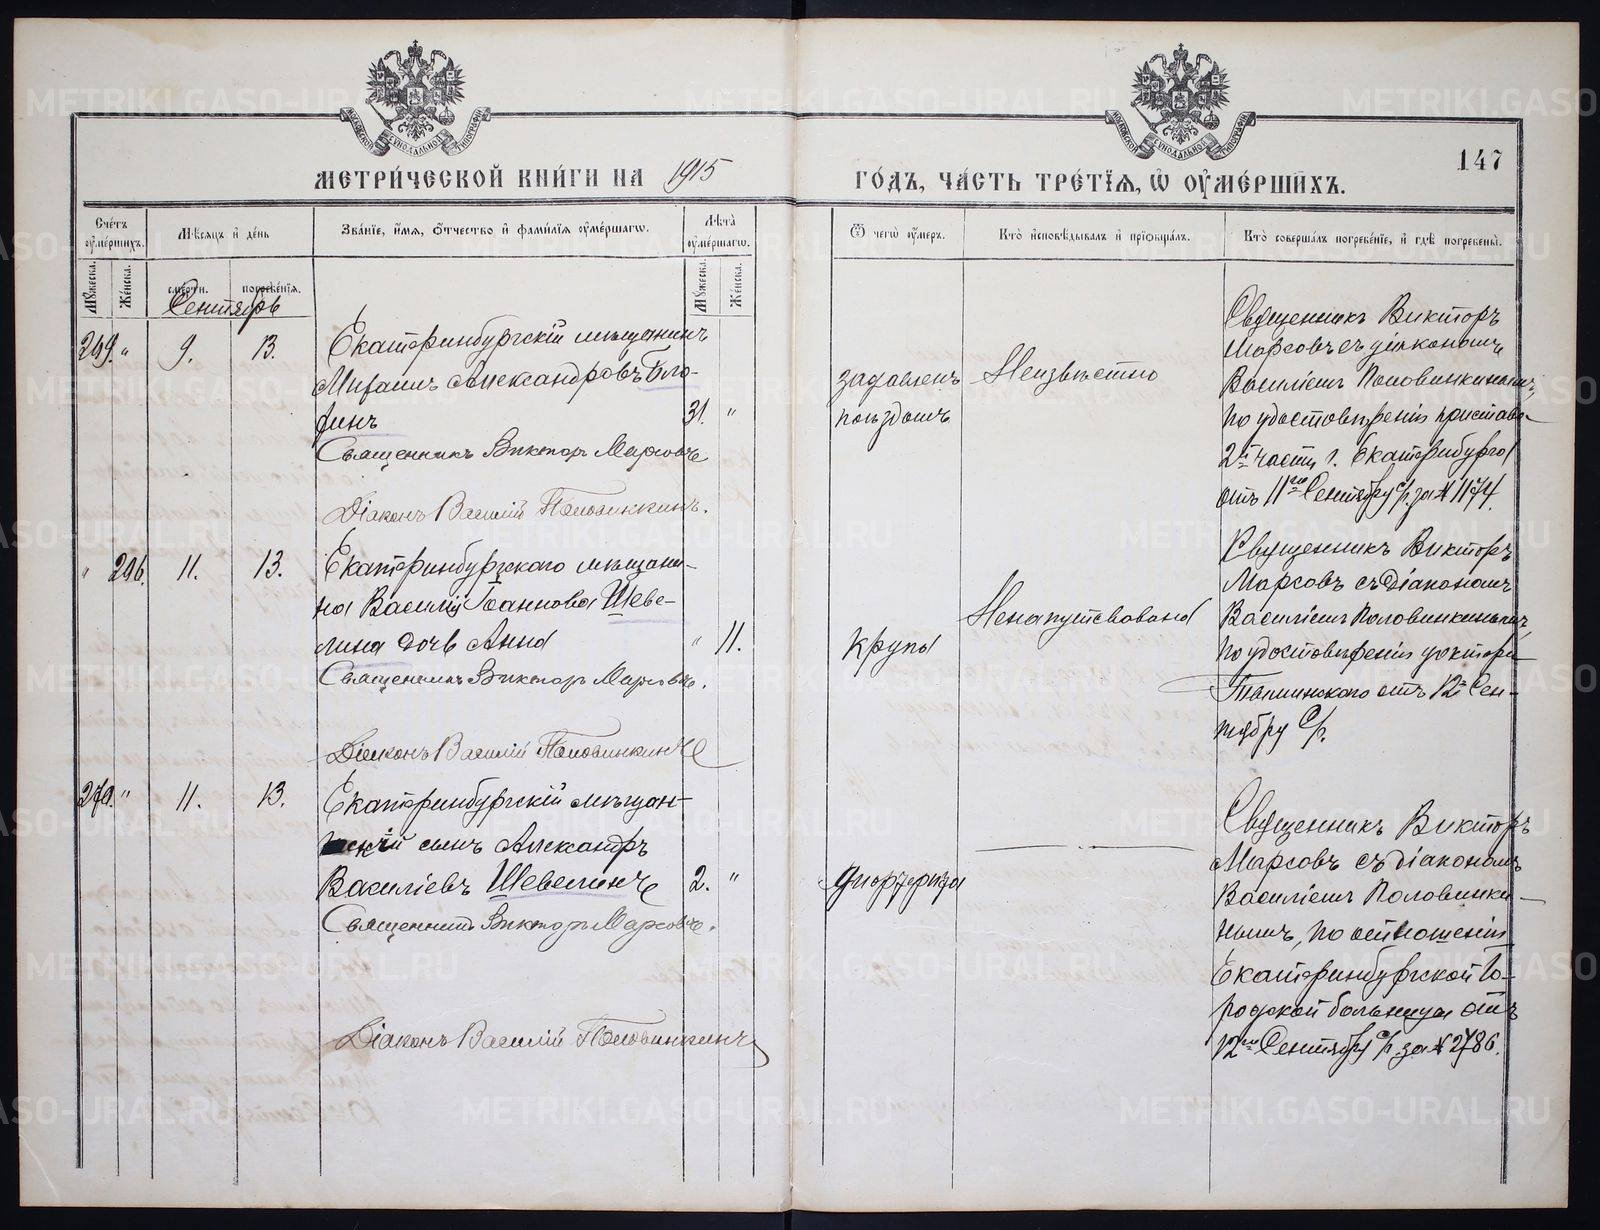 МЕТРИ́ЧЕСКОЙ КНИ́ГИ НА 1915
ГО́ДЪ, ЧА́СТЬ ТРЕ́ТІѦ, Ѡ ОУМЕ́РШИХЪ.
147
Сче́тъ оуме́ршихъ.
Му́жеска.
Же́нска.
Мѣ́сяцъ и де́нь
сме́рти.
погребе́нія.
Зва́ніе, и́мя, о́тчество и фами́лія оуме́ршагѡ.
Лѣ́та оуме́ршагѡ.
Му́жеска.
Же́нска.
Ѿ чегѡ̀ оу́меръ.
Кто̀ исповѣ́дывалъ и пріобща́лъ.
Кто̀ соверша́лъ погребе́ніе, и гдѣ̀ погребены̀.
Сентябрь
269. " 9. 13.
Екатеринбургскій мѣщанинъ
Михаилъ Александровъ Бло-
хинъ
31. "
Священникъ Викторъ Марсовъ
Діаконъ Василій Половинкинъ.
задавленъ
поѣздомъ
Неизвѣстно
Священникъ Викторъ
Марсовъ съ діакономъ
Василіемъ Половинкинымъ,
по удостовѣренію пристава
2й части г. Екатеринбурга
отъ 11го Сентября с/г. за № 1174.
" 206. 11. 13.
Екатеринбургскаго мѣщани-
на Василія Іоаннова Шеве-
лина дочь Анна
" 11.
Священникъ Викторъ Марсовъ.
Діаконъ Василій Половинкинъ
крупа
Ненапутствована
Священникъ Викторъ
Марсовъ съ діакономъ
Василіемъ Половинкинымъ,
по удостовѣренію доктора
отъ 12го Сен-
тября с/г.
270. " 11. 13.
Екатеринбургскій мѣщан-
скій сынъ Александръ
Василіевъ Шевелинъ
2. "
Священникъ Викторъ Марсовъ.
Діаконъ Василій Половинкинъ
Священникъ Викторъ
Марсовъ съ діакономъ
Василіемъ Половинки-
нымъ, по отношенію
Екатеринбургской Го-
родской больницы отъ
12го Сентября с/г. за № 2786.
METRIKI.GASO-URAL.RU